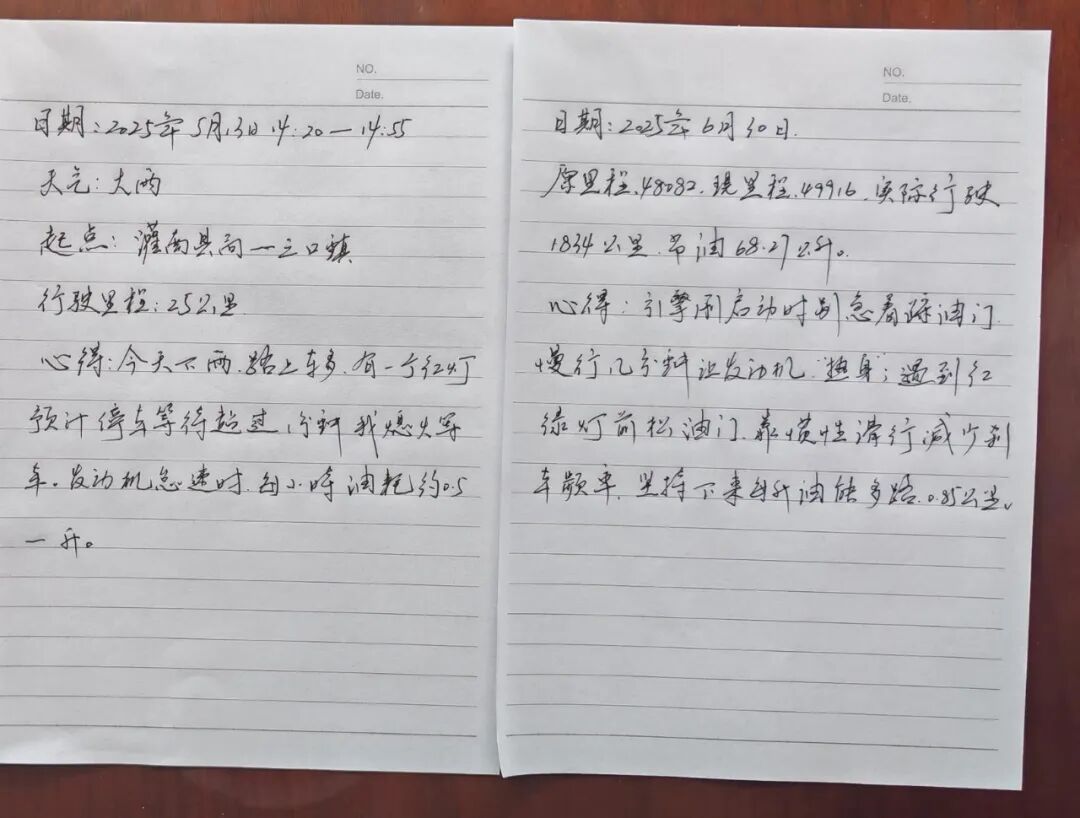 NO.
Date.
日期:2025年5月13日14:20—14:55
天气:大雨
起点:灌南县局—三口镇
行驶里程:25公里
心得:今天下雨,路上车多,有一个红灯
预计停车等待超过1分钟我熄火等
车。发动机怠速时,每小时油耗约0.5
一升。
NO.
Date.
日期:2025年6月30日.
原里程.48082.现里程.49916.实际行驶
1834公里.节油68.27公升。
心得:引擎刚启动时别急着踩油门.
慢行几分钟让发动机"热身";遇到红
绿灯前松油门,靠惯性滑行减少刹
车频率,坚持下来每升油能多跑.0.85公里。